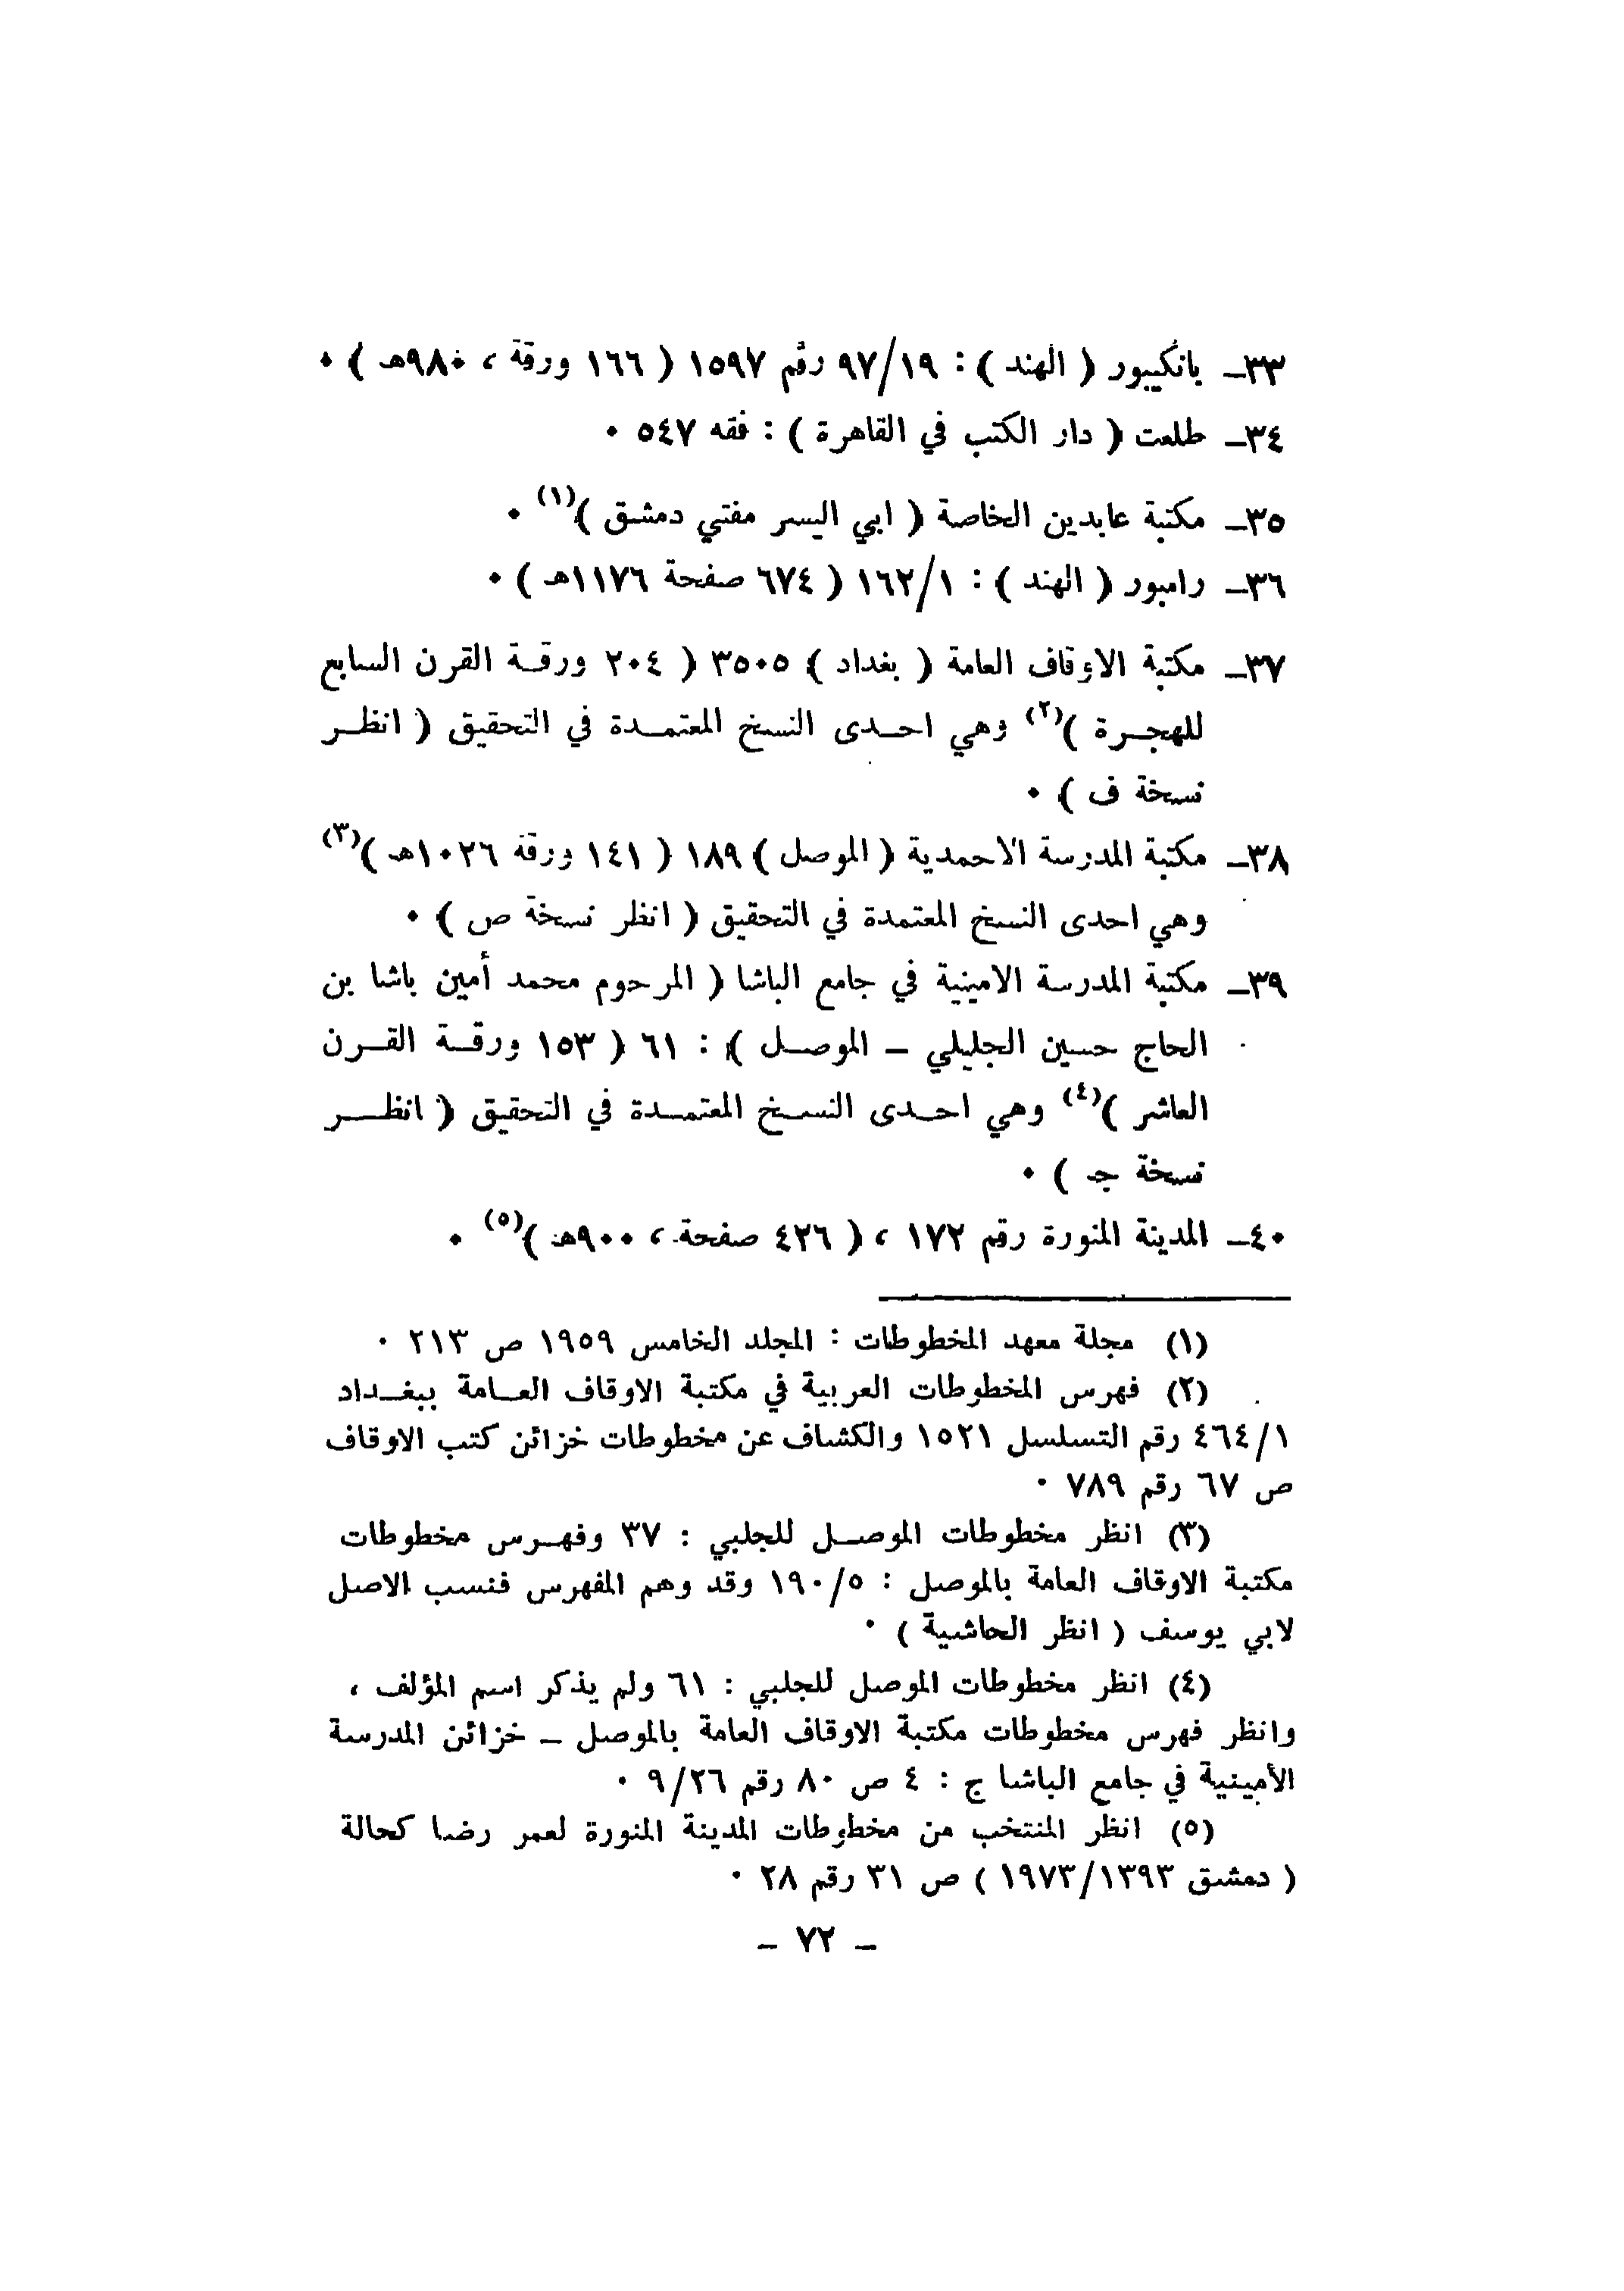 ٣٣ـ بانكيبور ( الهند ) : ٩٧/١٩ رقم ١٥٩٧ ( ١٦٦ ورقة ، ٩٨٠هـ ) ٠
٣٤ـ طلعت ( دار الكتب في القاهرة ) : فقه ٥٤٧ ٠
٣٥ـ مكتبة عابدين الخاصة ( ابي اليسر مفتي دمشق )(١) ٠
٣٦ـ رامبور ( الهند ) : ١٦٢/١ ( ٦٧٤ صفحة ١١٧٦هـ ) ٠
٣٧ـ مكتبة الاوقاف العامة ( بغداد ) ٣٥٠٥ ( ٢٠٤ ورقة القرن السابع
للهجرة )(٢) وهي احدى النسخ المعتمدة في التحقيق ( انظر
نسخة ف ) ٠
٣٨ـ مكتبة المدرسة الاحمدية ( الموصل ) ١٨٩ ( ١٤١ ورقة ١٠٢٦هـ )(٣)
وهي احدى النسخ المعتمدة في التحقيق ( انظر نسخة ص ) ٠
٣٩ـ مكتبة المدرسة الامينية في جامع الباشا ( المرحوم محمد أمين باشا بن
الحاج حسين الجليلي ـ الموصل ) : ٦١ ( ١٥٣ ورقة القرن
العاشر )(٤) وهي احدى النسخ المعتمدة في التحقيق ( انظر
نسخة جـ ) ٠
٤٠ـ المدينة المنورة رقم ١٧٢ ، ( ٤٢٦ صفحة ، ٩٠٠هـ )(٥) ٠
(١) مجلة معهد المخطوطات : المجلد الخامس ١٩٥٩ ص ٢١٣ ٠
(٢) فهرس المخطوطات العربية في مكتبة الاوقاف العامة ببغداد
٤٦٤/١ رقم التسلسل ١٥٢١ والكشاف عن مخطوطات خزائن كتب الاوقاف
ص ٦٧ رقم ٧٨٩ ٠
(٣) انظر مخطوطات الموصل للجلبي : ٣٧ وفهرس مخطوطات
مكتبة الاوقاف العامة بالموصل : ١٩٠/٥ وقد وهم المفهرس فنسب الاصل
لابي يوسف ( انظر الحاشية ) ٠
(٤) انظر مخطوطات الموصل للجلبي : ٦١ ولم يذكر اسم المؤلف ،
وانظر فهرس مخطوطات مكتبة الاوقاف العامة بالموصل ـ خزائن المدرسة
الأمينية في جامع الباشا ج : ٤ ص ٨٠ رقم ٩/٢٦ ٠
(٥) انظر المنتخب من مخطوطات المدينة المنورة لعمر رضا كحالة
( دمشق ١٩٧٣/١٣٩٣ ) ص ٣١ رقم ٢٨ ٠
ـ ٧٢ ـ